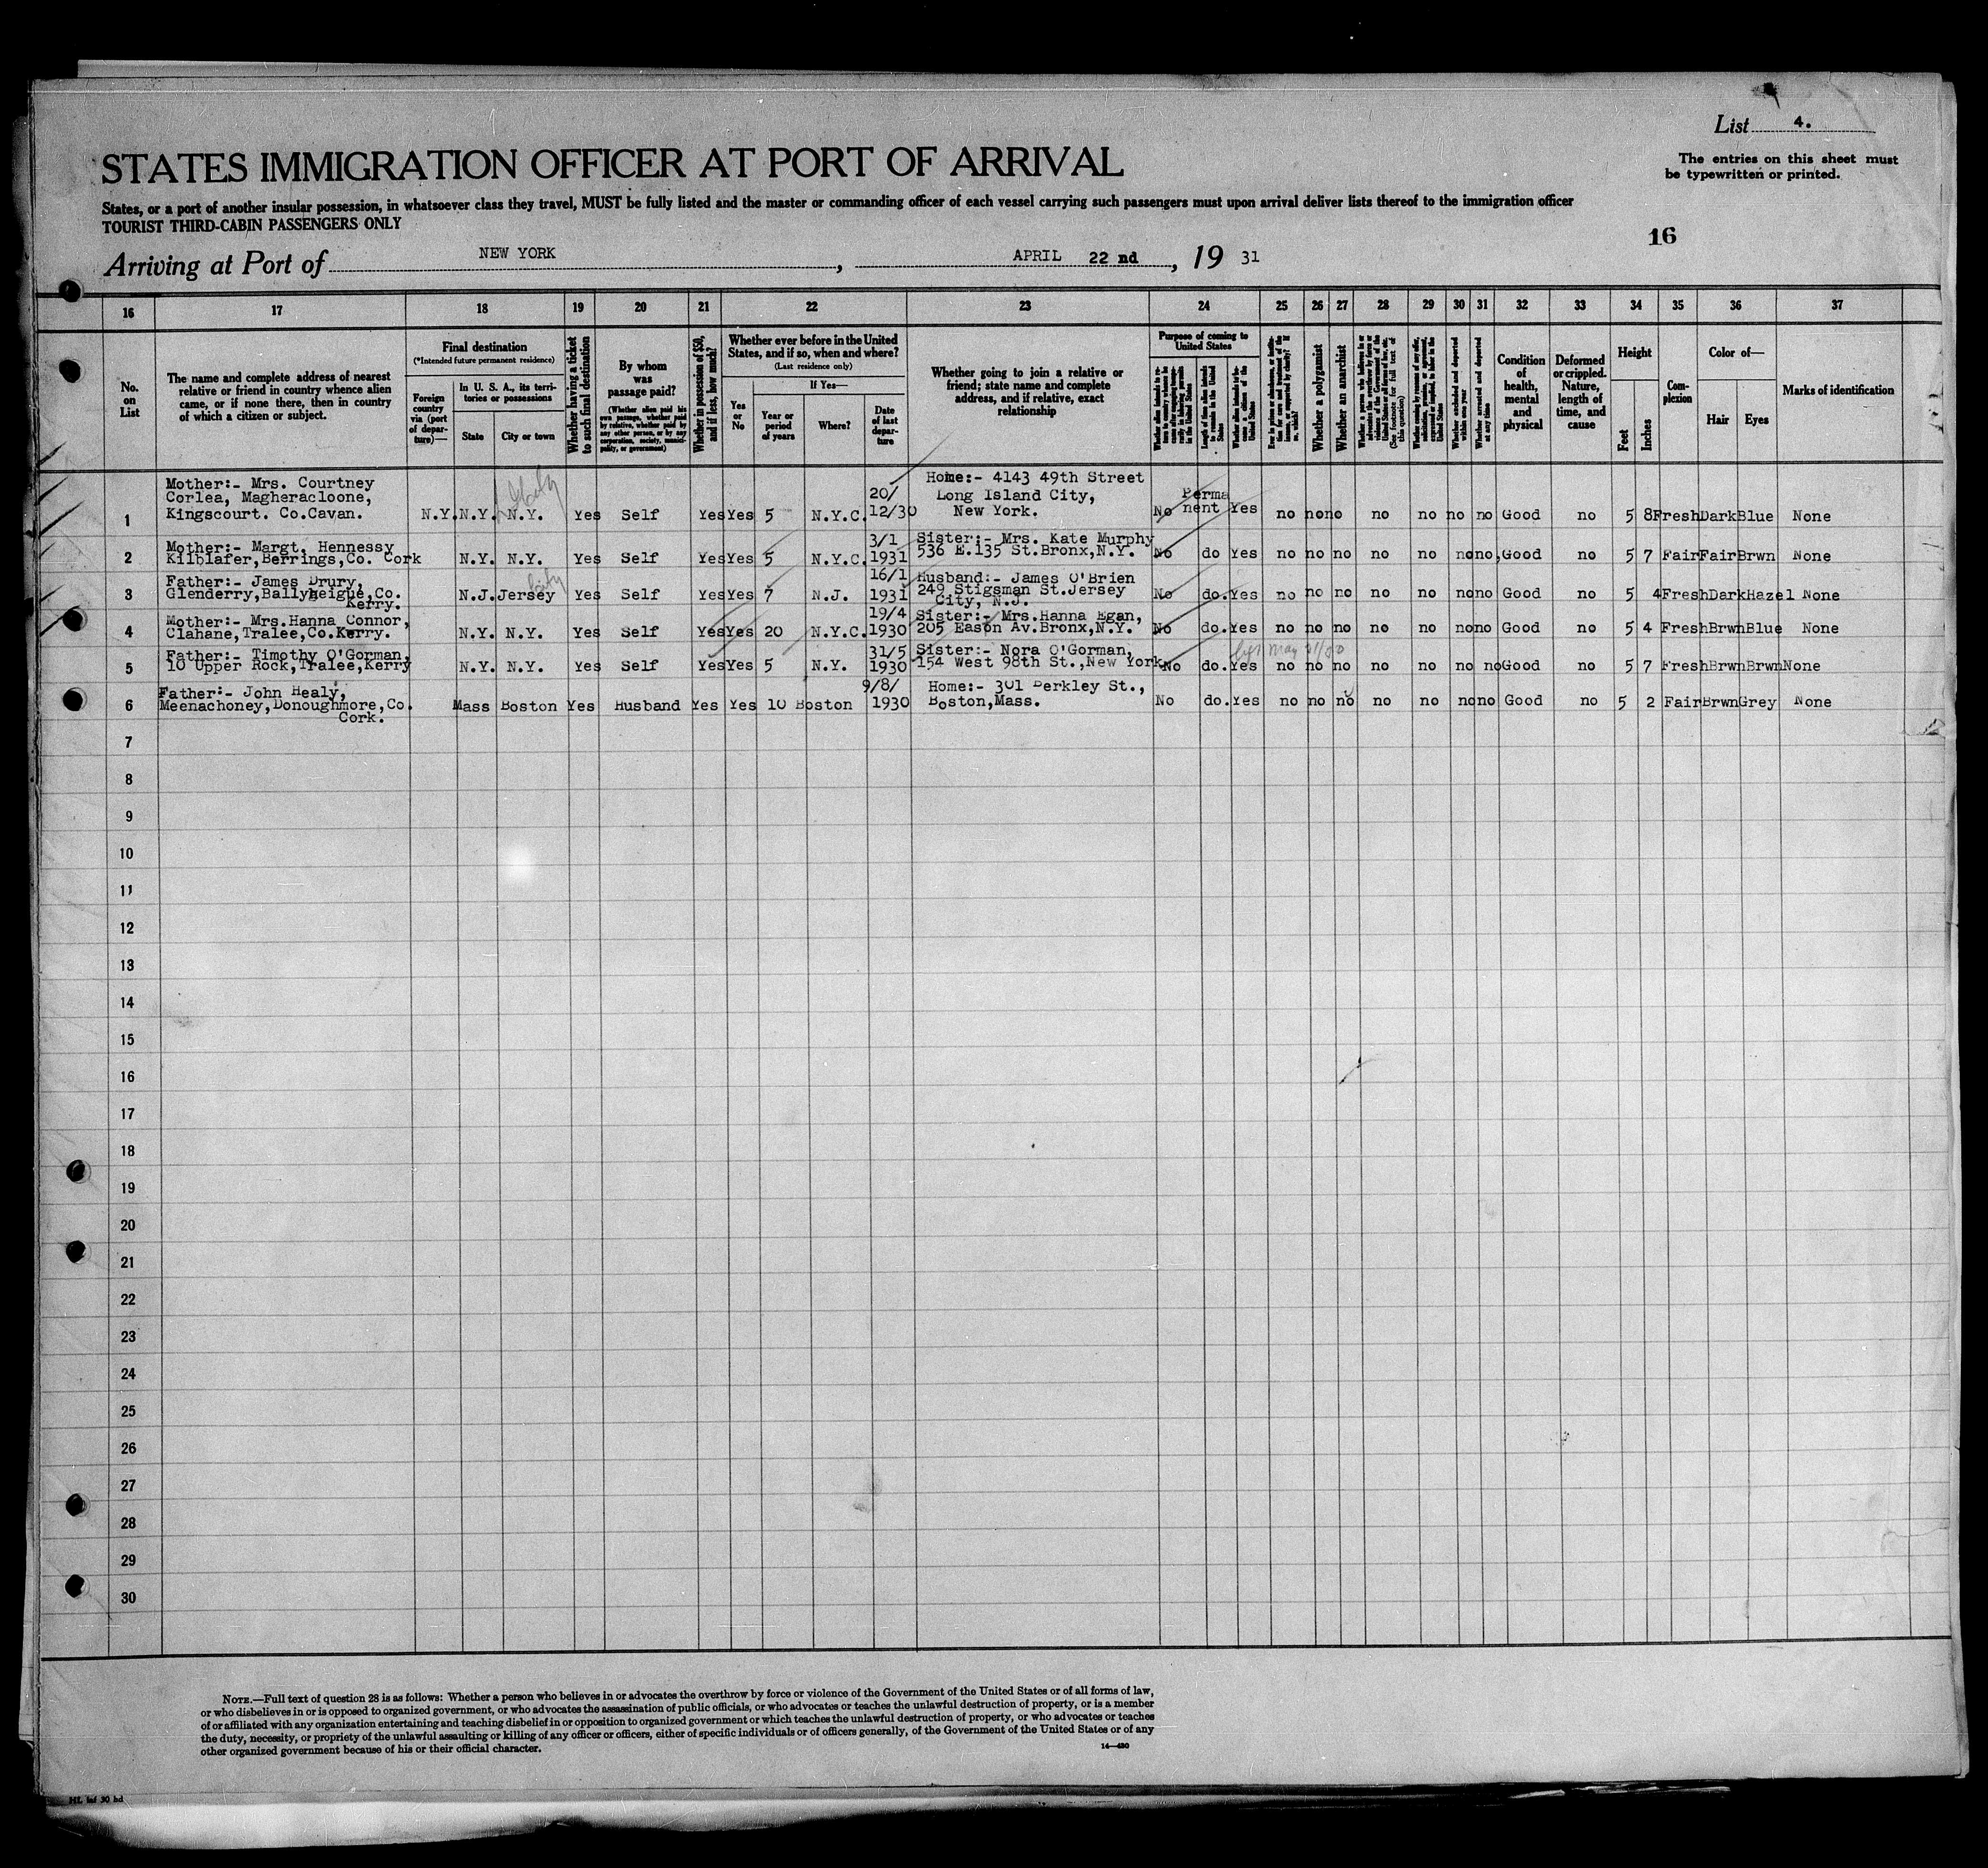 List 4.
STATES IMMIGRATION OFFICER AT PORT OF ARRIVAL
The entries on this sheet must
be typewritten or printed.
States, or a port of another insular possession, in whatsoever class they travel, MUST be fully listed and the master or commanding officer of each vessel carrying such passengers must upon arrival deliver lists thereof to the immigration officer
TOURIST THIRD-CABIN PASSENGERS ONLY
16
Arriving at Port of NEW YORK , APRIL 22 nd , 19 31
16 17 18 19 20 21 22 23 24 25 26 27 28 29 30 31 32 33 34 35 36 37
No.
on
List
The name and complete address of nearest
relative or friend in country whence alien
came, or if none there, then in country
of which a citizen or subject.
Final destination
(*Intended future permanent residence)
Foreign
country
via (port
of depar-
ture)—
In U. S. A., its terri-
tories or possessions
State
City or town
Whether having a ticket
to such final destination
By whom
was
passage paid?
(Whether alien paid his
own passage, whether paid
by relative, whether paid by
any other person, or by any
corporation, society, munici-
pality, or government)
Whether in possession of $50,
and if less, how much?
Whether ever before in the United
States, and if so, when and where?
(Last residence only)
Yes
or
No
If Yes—
Year or
period
of years
Where?
Date
of last
depar-
ture
Whether going to join a relative or
friend; state name and complete
address, and if relative, exact
relationship
Purpose of coming to
United States
Length of time alien intends
to remain in the United
States
Whether alien intends to be-
come a citizen of the
United States
Whether a polygamist
Whether an anarchist
Whether excluded and deported
within one year
Whether arrested and deported
at any time
Condition
of
health,
mental
and
physical
Deformed
or crippled.
Nature,
length of
time, and
cause
Height
Feet
Inches
Com-
plexion
Color of—
Hair
Eyes
Marks of identification
Mother:- Mrs. Courtney
Corlea, Magheracloone,
Kingscourt. Co.Cavan.
1 N.Y. N.Y. N.Y. Yes Self Yes Yes 5 N.Y.C. 20/
12/30
Home:- 4143 49th Street
Long Island City,
New York.
No Perma
nent Yes no no no no no no no Good no 5 8 Fresh Dark Blue None
Mother:- Margt. Hennessy
2 Kilblafer,Berrings,Co. Cork N.Y. N.Y. Yes Self Yes Yes 5 N.Y.C. 3/1
1931
Sister:- Mrs. Kate Murphy
536 E.135 St.Bronx,N.Y.
No do Yes no no no no no no no, Good no 5 7 Fair Fair Brwn None
Father:- James Drury,
3 Glenderry,Ballyheigue,Co.
Kerry.
N.J. Jersey City Yes Self Yes Yes 7 N.J. 16/1
1931
Husband:- James O'Brien
249 Stigsman St.Jersey
City, N.J.
No do. Yes no no no no no no no Good no 5 4 Fresh Dark Hazel None
Mother:- Mrs.Hanna Connor,
4 Clahane,Tralee,Co.Kerry. N.Y. N.Y. Yes Self Yes Yes 20 N.Y.C. 19/4
1930
Sister:- Mrs.Hanna Egan,
205 Eason Av.Bronx,N.Y.
No do. Yes no no no no no no no Good no 5 4 Fresh Brwn Blue None
Father:- Timothy O'Gorman,
5 10 Upper Rock,Tralee,Kerry N.Y. N.Y. Yes Self Yes Yes 5 N.Y. 31/5
1930
Sister:- Nora O'Gorman,
154 West 98th St.,New York
No do. Yes no no no no no no no Good no 5 7 Fresh Brwn Brwn None
Father:- John Healy,
6 Meenachoney,Donoughmore,Co.
Cork.
Mass Boston Yes Husband Yes Yes 10 Boston 9/8/
1930
Home:- 301 Berkley St.,
Boston,Mass.
No do. Yes no no no no no no no Good no 5 2 Fair Brwn Grey None
7
8
9
10
11
12
13
14
15
16
17
18
19
20
21
22
23
24
25
26
27
28
29
30
NOTE.—Full text of question 28 is as follows: Whether a person who believes in or advocates the overthrow by force or violence of the Government of the United States or of all forms of law,
or who disbelieves in or is opposed to organized government, or who advocates the assassination of public officials, or who advocates or teaches the unlawful destruction of property, or is a member
of or affiliated with any organization entertaining and teaching disbelief in or opposition to organized government or which teaches the unlawful destruction of property, or who advocates or teaches
the duty, necessity, or propriety of the unlawful assaulting or killing of any officer or officers, either of specific individuals or of officers generally, of the Government of the United States or of any
other organized government because of his or their official character.
14—430